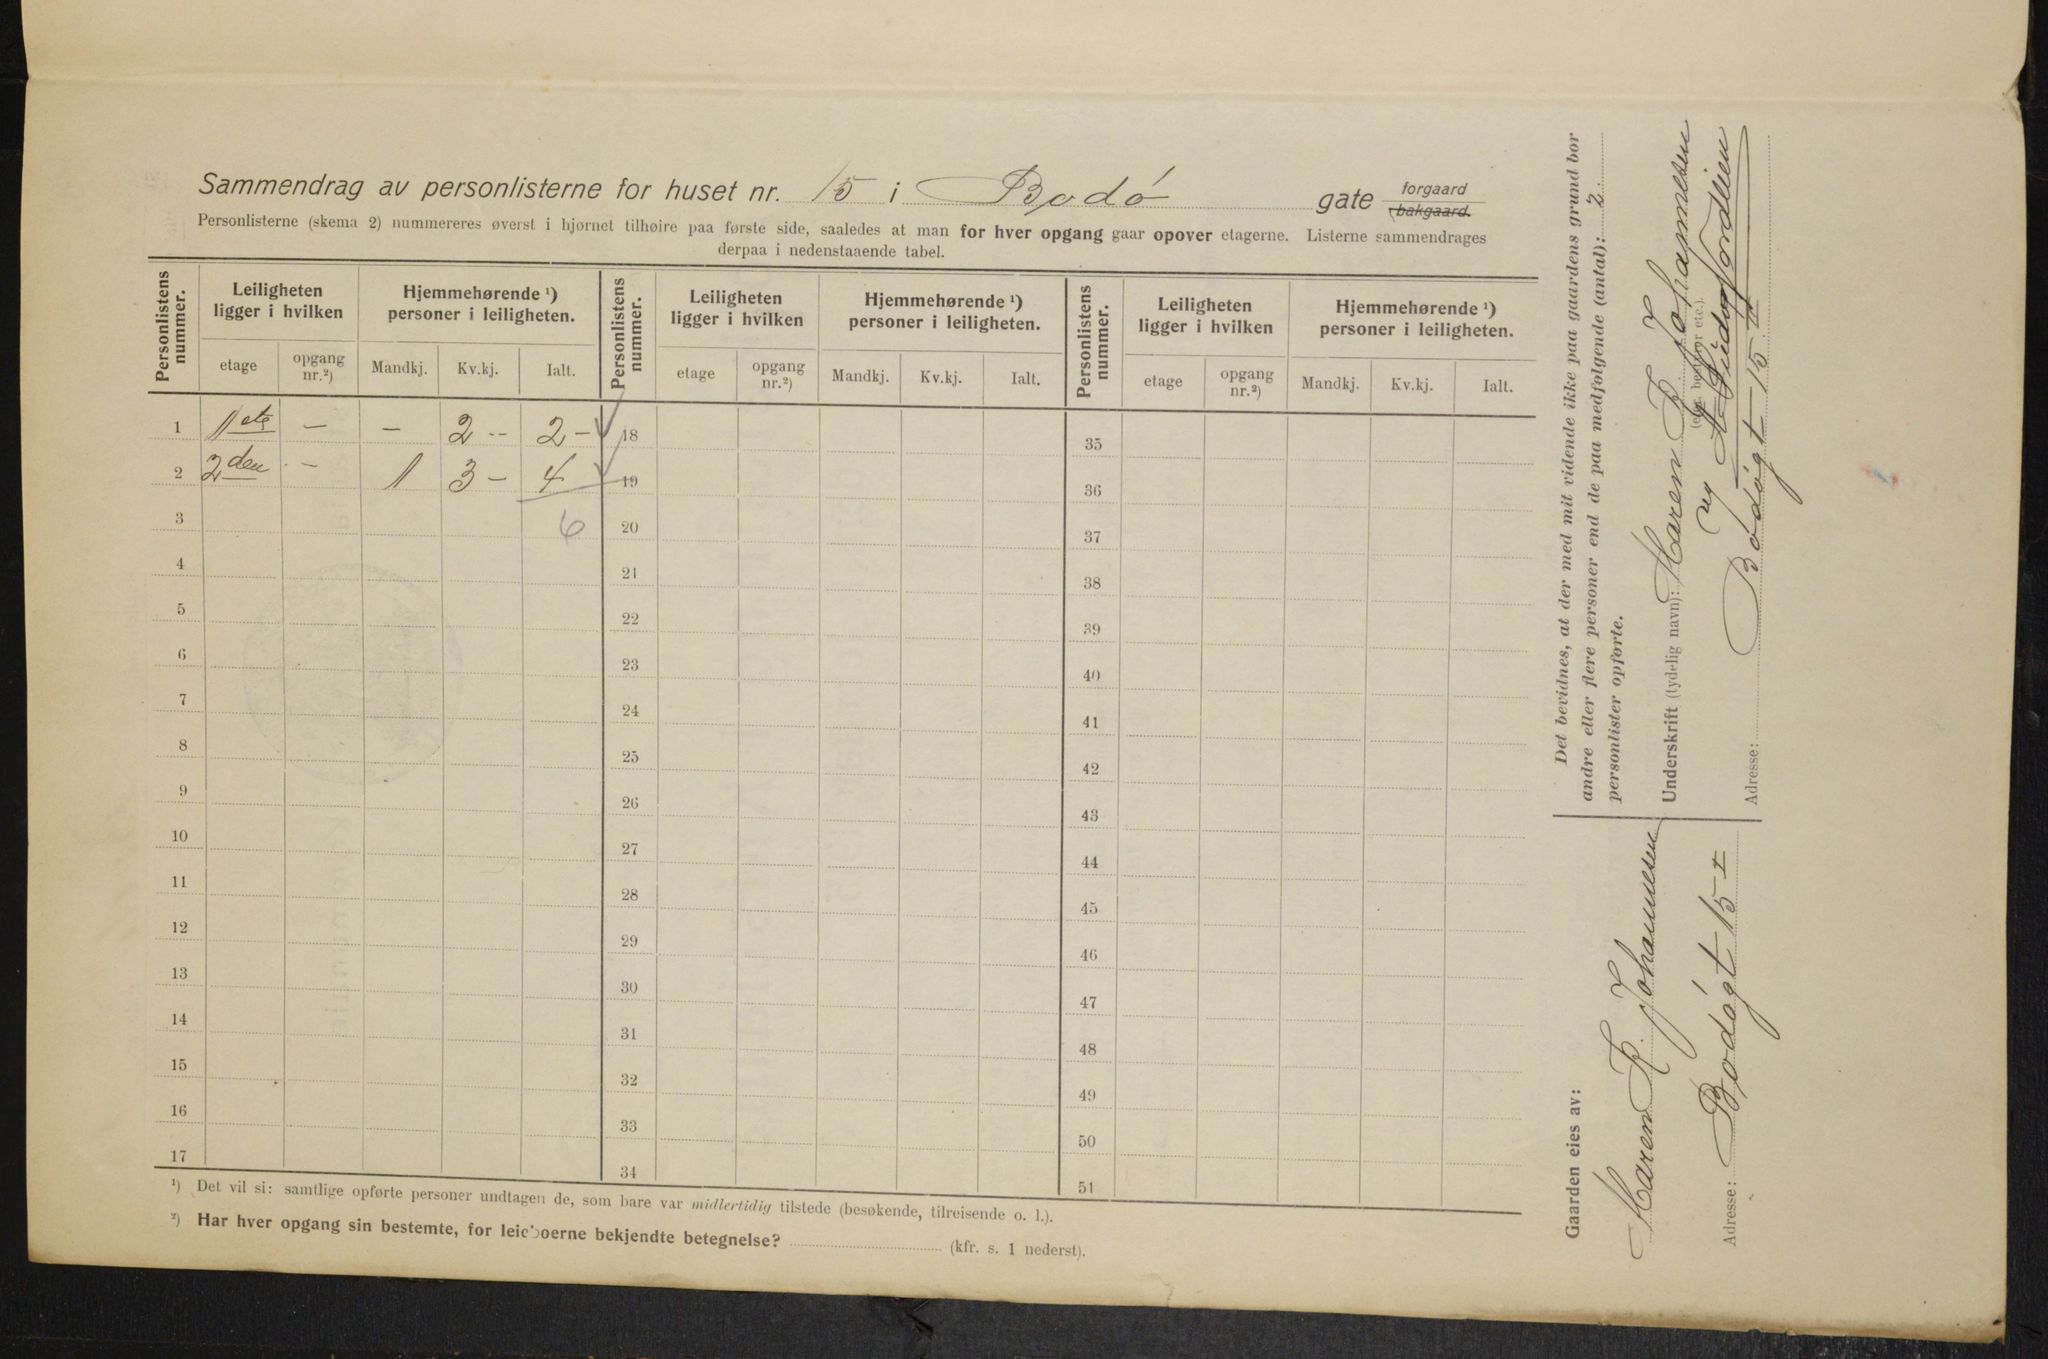 Sammendrag av personlisterne for huset nr. 15 i Bodø gate forgaard bakgaard.
Personlisterne (skema 2) nummereres øverst i hjørnet tilhøire paa første side, saaledes at man for hver opgang gaar opover etagerne. Listerne sammendrages
derpaa i nedenstaaende tabel.
Personlistens nummer. Leiligheten ligger i hvilken Hjemmehørende ¹) personer i leiligheten. Personlistens nummer. Leiligheten ligger i hvilken Hjemmehørende ¹) personer i leiligheten. Personlistens nummer. Leiligheten ligger i hvilken Hjemmehørende ¹) personer i leiligheten.
etage opgang nr.²) Mandkj. Kv.kj. Ialt. etage opgang nr.²) Mandkj. Kv.kj. Ialt. etage opgang nr.²) Mandkj. Kv.kj. Ialt.
1 1ste – – 2 -- 2 – 18 35
2 2den – 1 3 – 4 19 36
3 6 20 37
4 21 38
5 22 39
6 23 40
7 24 41
8 25 42
9 26 43
10 27 44
11 28 45
12 29 46
13 30 47
14 31 48
15 32 49
16 33 50
17 34 51
¹) Det vil si: samtlige opførte personer undtagen de, som bare var midlertidig tilstede (besøkende, tilreisende o. l.).
²) Har hver opgang sin bestemte, for leieboerne bekjendte betegnelse? (kfr. s. 1 nederst).
Det bevidnes, at der med mit vidende ikke paa gaardens grund bor
andre eller flere personer end de paa medfølgende (antal): 2
personlister opførte.
Underskrift (tydelig navn): Maren K. Johannesen
(eier, bestyrer etc.).
og
Adresse: Bodøgt 15 II
Gaarden eies av:
Maren K. Johannesen
Adresse: Bodøgt 15 I